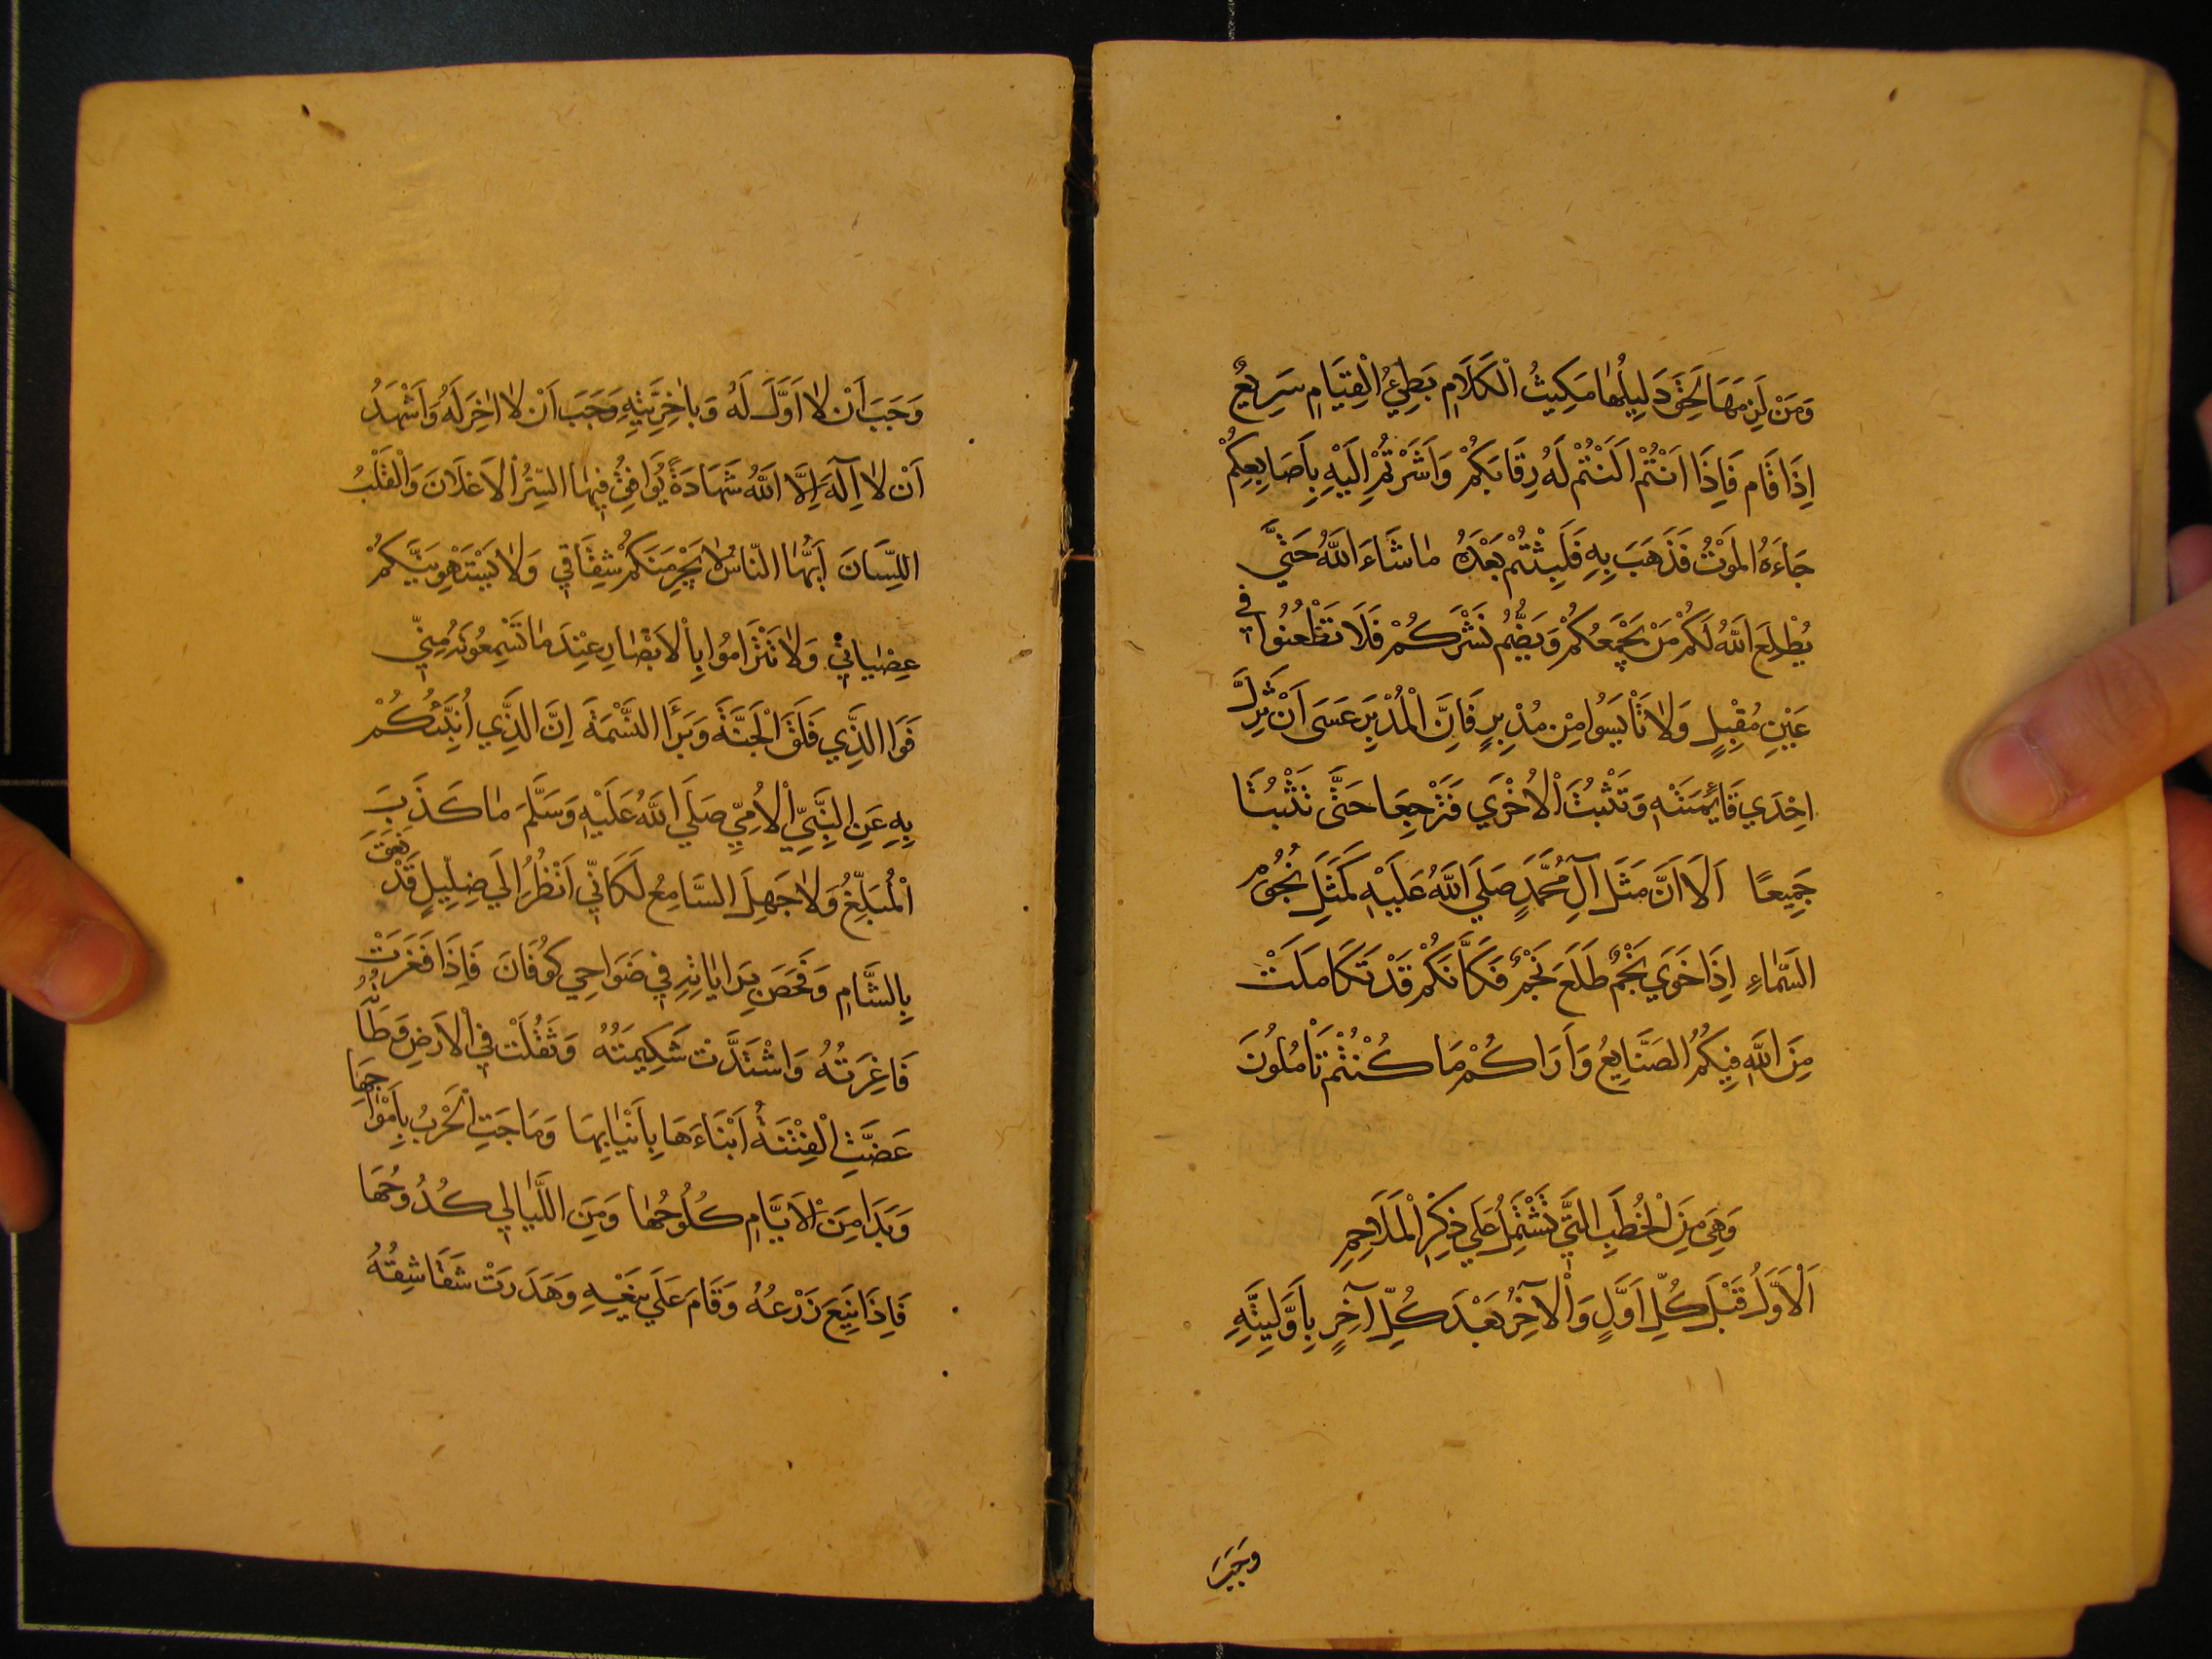 وَمَنْ لَزِمَهَا لَحِقَ دَلِيلُهٰا مَكِيثُ الْكَلَامِ بَطِيءُ الْقِيَامِ سَرِيعٌ
اِذَا قَامَ فَاِذَا اَنْتُمْ اَلَنْتُمْ لَهُ رِقَابَكُمْ وَاَشَرْتُمْ اِلَيْهِ بِاَصَابِعِكُمْ
جَاءَهُ الْمَوْتُ فَذَهَبَ بِهِ فَلَبِثْتُمْ بَعْدَهُ مٰا شَاءَ اللَّهُ حَتَّي
يُطْلِعَ اللَّهُ لَكُمْ مَنْ يَجْمَعُكُمْ وَيَضُمُّ نَشْرَكُمْ فَلَا تَطْعُنُوا في
عَيْنِ مُقْبِلٍ وَلٰا تَاْيَسُوا مِنْ مُدْبِرٍ فَاِنَّ الْمُدْبِرَ عَسَى اَنْ تَزِلَّ
اِحْدَي قَائِمَتَيْهِ وَتَثْبُتَ الْاُخْرَي فَتَرْجِعَا حَتَّى تَثْبُتَا
جَمِيعًا اَلَا اَنَّ مَثَلَ آلِ مُحَمَّدٍ صَلَي اللَّهُ عَلَيْهِ كَمَثَلِ نُجُوْمِ
السَّمٰاءِ اِذَا خَوَي نَجْمٌ طَلَعَ نَجْمٌ فَكَاَنَّكُمْ قَدْ تَكَامَلَتْ
مِنَ اللَّهِ فِيكُمُ الصَّنَايِعُ وَاَرَاكُمْ مَا كُنْتُمْ تَاْمُلُونَ
وَهِيَ مِنَ الْخُطَبِ الَّتِي تَشْتَمِلُ عَلَي ذِكْرِ الْمَلَاحِمِ
اَلْاَوَّلُ قَبْلَ كُلِّ اَوَّلٍ وَالْآخِرُ بَعْدَ كُلِّ آخِرٍ بِاَوَّلِيَّتِهِ
وَجَبَ
وَجَبَ اَنْ لٰا اَوَّلَ لَهُ وَبِاٰخِرِيَّتِهِ وَجَبَ اَنْ لٰا اٰخِرَ لَهُ وَاَشْهَدُ
اَنْ لٰا اِلَهَ اِلَّا اللَّهُ شَهَادَةً يُوَافِقُ فِيهٰا السِّرُّ الْاِعْلَانَ وَالْقَلْبُ
اللِّسَانَ اَيُّهٰا النّاسُ لٰا يَجْرِمَنَكُمْ شِقَاقِي وَلٰا يَسْتَهْوِيَنَّكُمْ
عِصْيٰانِي وَلٰا تَتَرَامُوا بِاْلاَبْصٰارِ عِنْدَ مٰا تَسْمِعُونَهُ مِنِّي
فَوَا الَّذِي فَلَقَ الْحَبَّةَ وَبَرَاَ النَّسْمَةَ اِنَّ الَّذِي اُنَبِّئُكُمْ
بِهِ عَنِ النَّبِيِّ الْاُمِّيِّ صَلَي اللَّهُ عَلَيْهِ وَسَلَّمَ مٰا كَذَبَ
الْمُبَلِّغُ وَلٰا جَهِلَ السَّامِعُ لَكَاَنِّي اَنْظُرُ اِلَي ضِلِّيلٍ قَدْ نَعَقَ
بِالشَّامِ وَفَحَصَ بِرَايٰاتِهِ فِي ضَوَاحِي كُوفَانَ فَاِذَا فَغَرَتْ
فَاغِرَتُهُ وَاشْتَدَّتْ شَكِيمَتُهُ وَثَقُلَتْ فِي الْاَرْضِ وَطَاَتُهُ
عَضَّتِ الْفِتْنَةُ اَبْنَاءَهَا بِاَنْيٰابِهَا وَمَاجَتِ الْحَرْبُ بِاَمْوٰاجِهَا
وَبَدَا مِنَ الْاَيَّامِ كُلُوحُهٰا وَمِنَ اللَّيَالِي كُدُوحُهَا
فَاِذَا يَنِعَ زَرْعُهُ وَقَامَ عَلَي يَنْعِهِ وَهَدَرَتْ شَقَاشِقُهُ